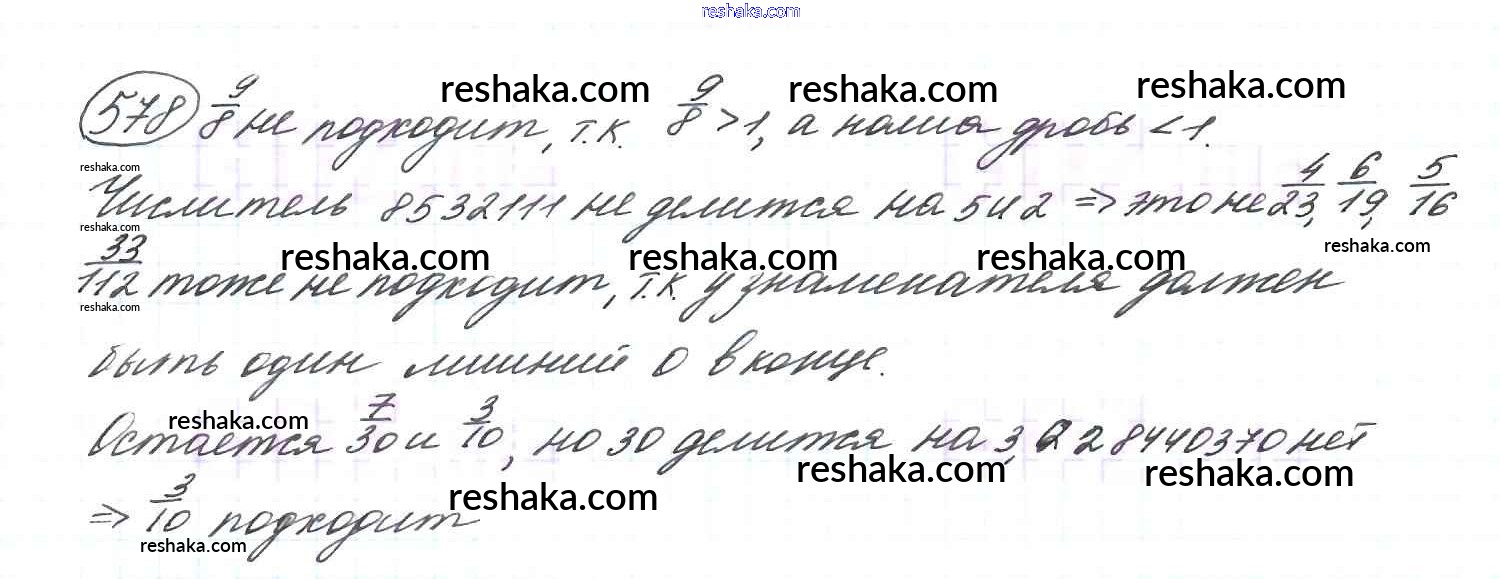 reshaka.com
578 9/8 не подходит, т.к. 9/8 > 1, а наша дробь < 1.
reshaka.com reshaka.com reshaka.com
reshaka.com
Числитель 8532111 не делится на 5 и 2 => это не 4/23, 6/19, 5/16
reshaka.com
33/112 тоже не подходит, т.к. у знаменателя должен
reshaka.com reshaka.com reshaka.com reshaka.com
reshaka.com
быть один лишний 0 в конце.
Остается 7/30 и 3/10, но 30 делится на 3, а 28440370 нет
reshaka.com reshaka.com reshaka.com
=> 3/10 подходит
reshaka.com reshaka.com